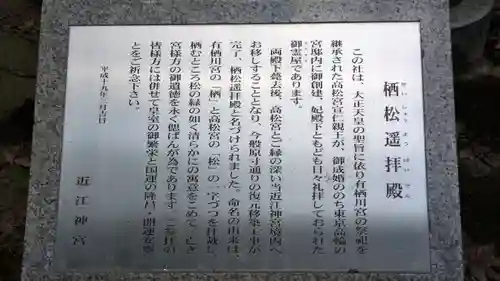 栖松遥拝殿
せいしょうようはいでん
この社は、大正天皇の聖旨に依り有栖川宮の祭祀を
継承された高松宮宣仁親王が、御成婚ののち東京高輪の
宮邸内に御創建、妃殿下ともども日々礼拝しておられた
御霊屋であります。
両殿下薨去後、高松宮とご縁の深い当近江神宮境内へ
お移しすることとなり、今般原寸通りの復元移築工事が
完了、栖松遥拝殿と名づけられました。命名の由来は、
有栖川宮の「栖」と高松宮の「松」の一字づつを拝戴し
栖むところ松の緑の如く清らかにの寓意をこめて、亡き
宮様方の御遺徳を永く偲ばんが為であります。ご参拝の
皆様方には併せて皇室の御繁栄と国運の隆昌・開運を
とをご祈念下さい。
平成十九年 月吉日
近江神宮